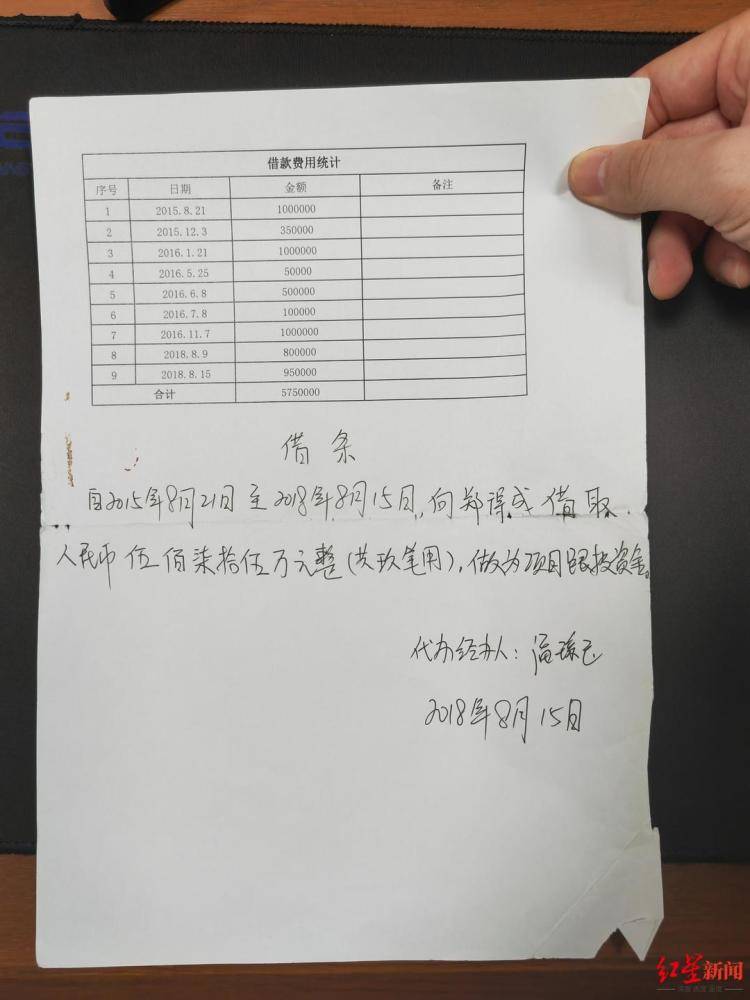 借款费用统计
序号 日期 金额 备注
1 2015.8.21 1000000
2 2015.12.3 350000
3 2016.1.21 1000000
4 2016.5.25 50000
5 2016.6.8 500000
6 2016.7.8 100000
7 2016.11.7 1000000
8 2018.8.9 800000
9 2018.8.15 950000
合计 5750000
借条
自2015年8月21日至2018年8月15日,向郑得成借取
人民币伍佰柒拾伍万元整(共玖笔用),做为项目跟投资金。
代办经办人:
2018年8月15日
红星新闻